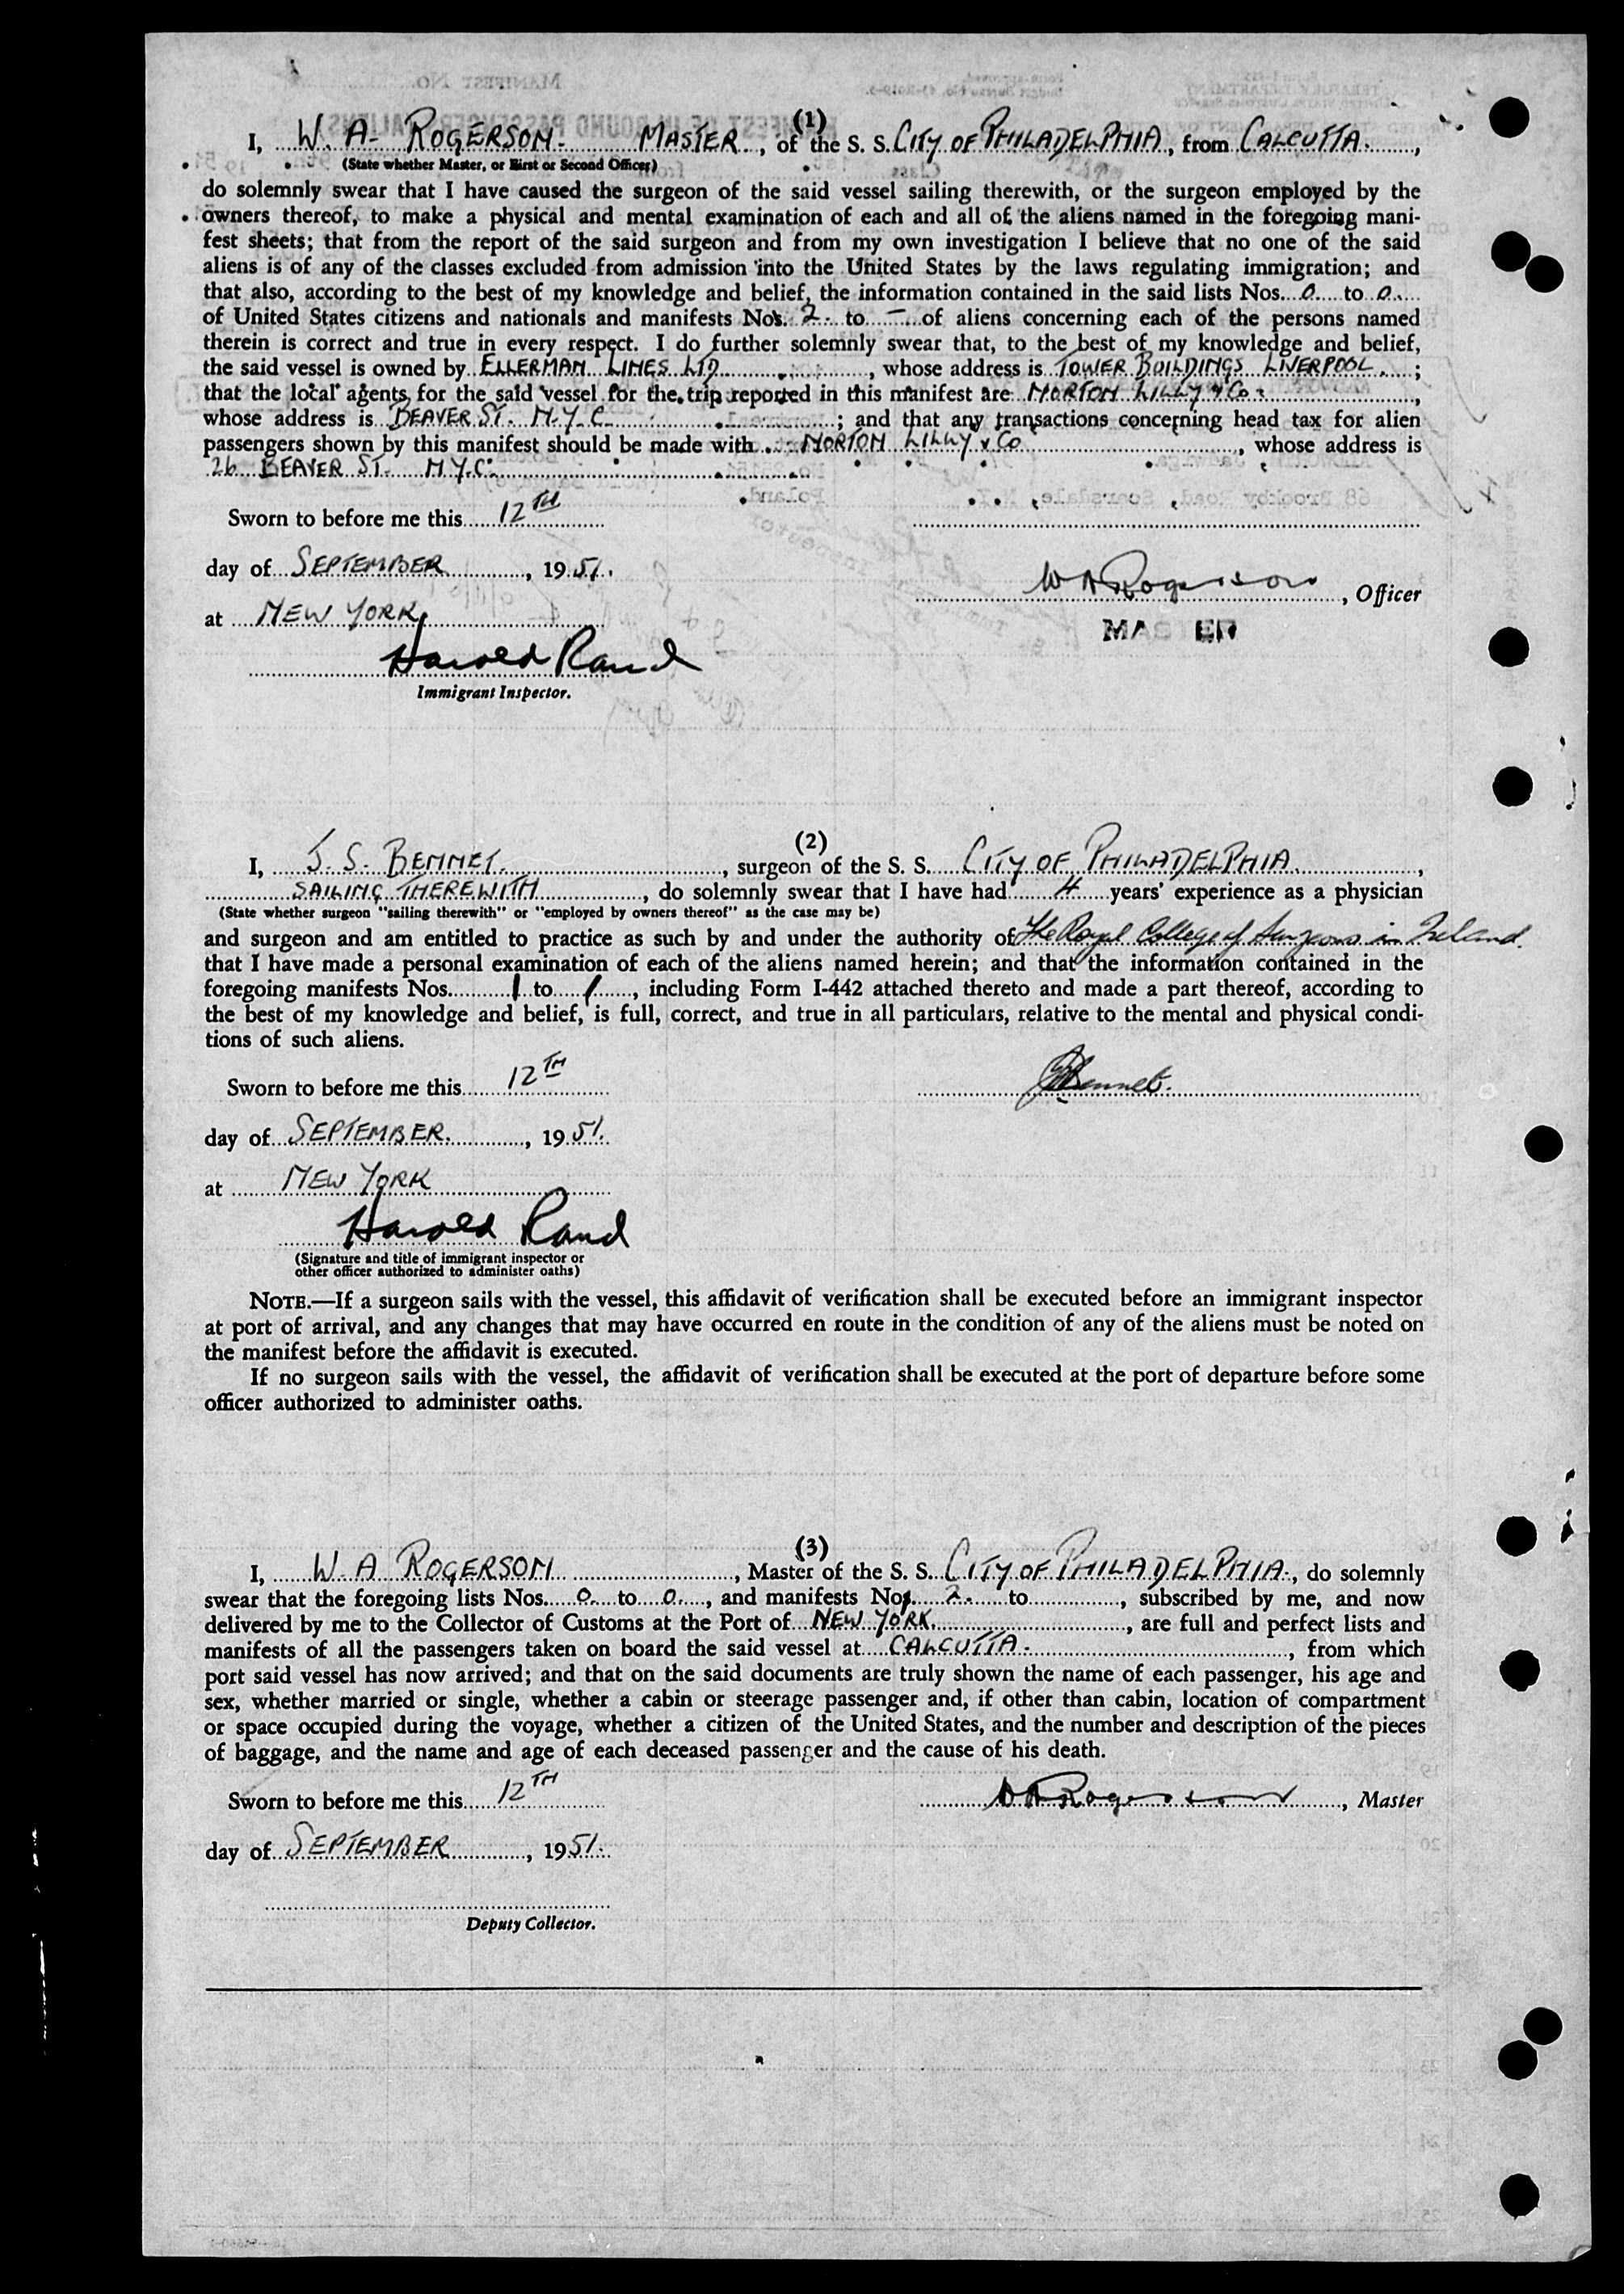 (1)
I, W. A. ROGERSON. MASTER, of the S. S. CITY OF PHILADELPHIA, from CALCUTTA.,
(State whether Master, or First or Second Officer)
do solemnly swear that I have caused the surgeon of the said vessel sailing therewith, or the surgeon employed by the
owners thereof, to make a physical and mental examination of each and all of the aliens named in the foregoing mani-
fest sheets; that from the report of the said surgeon and from my own investigation I believe that no one of the said
aliens is of any of the classes excluded from admission into the United States by the laws regulating immigration; and
that also, according to the best of my knowledge and belief, the information contained in the said lists Nos. 0 to 0
of United States citizens and nationals and manifests Nos. 2 to — of aliens concerning each of the persons named
therein is correct and true in every respect. I do further solemnly swear that, to the best of my knowledge and belief,
the said vessel is owned by ELLERMAN LINES LTD, whose address is TOWER BUILDINGS LIVERPOOL;
that the local agents for the said vessel for the trip reported in this manifest are NORTON LILLY & Co.,
whose address is BEAVER ST. N.Y.C.; and that any transactions concerning head tax for alien
passengers shown by this manifest should be made with NORTON LILLY & Co, whose address is
26 BEAVER ST. N.Y.C.
Sworn to before me this 12TH
day of SEPTEMBER, 1951.
W A Rogerson, Officer
at NEW YORK
MASTER
Harold Rand
Immigrant Inspector.
(2)
I, J. S. BENNET., surgeon of the S. S. CITY OF PHILADELPHIA,
SAILING THEREWITH, do solemnly swear that I have had 4 years' experience as a physician
(State whether surgeon "sailing therewith" or "employed by owners thereof" as the case may be)
and surgeon and am entitled to practice as such by and under the authority of The Royal College of Surgeons in Ireland.
that I have made a personal examination of each of the aliens named herein; and that the information contained in the
foregoing manifests Nos. 1 to 1, including Form I-442 attached thereto and made a part thereof, according to
the best of my knowledge and belief, is full, correct, and true in all particulars, relative to the mental and physical condi-
tions of such aliens.
Sworn to before me this 12TH
JSBennet.
day of SEPTEMBER., 1951.
at NEW YORK
Harold Rand
(Signature and title of immigrant inspector or
other officer authorized to administer oaths)
NOTE.—If a surgeon sails with the vessel, this affidavit of verification shall be executed before an immigrant inspector
at port of arrival, and any changes that may have occurred en route in the condition of any of the aliens must be noted on
the manifest before the affidavit is executed.
If no surgeon sails with the vessel, the affidavit of verification shall be executed at the port of departure before some
officer authorized to administer oaths.
(3)
I, W. A ROGERSON, Master of the S. S. CITY OF PHILADELPHIA., do solemnly
swear that the foregoing lists Nos. 0 to 0, and manifests Nos. 2. to, subscribed by me, and now
delivered by me to the Collector of Customs at the Port of NEW YORK, are full and perfect lists and
manifests of all the passengers taken on board the said vessel at CALCUTTA., from which
port said vessel has now arrived; and that on the said documents are truly shown the name of each passenger, his age and
sex, whether married or single, whether a cabin or steerage passenger and, if other than cabin, location of compartment
or space occupied during the voyage, whether a citizen of the United States, and the number and description of the pieces
of baggage, and the name and age of each deceased passenger and the cause of his death.
Sworn to before me this 12TH
W A Rogerson, Master
day of SEPTEMBER, 1951.
Deputy Collector.